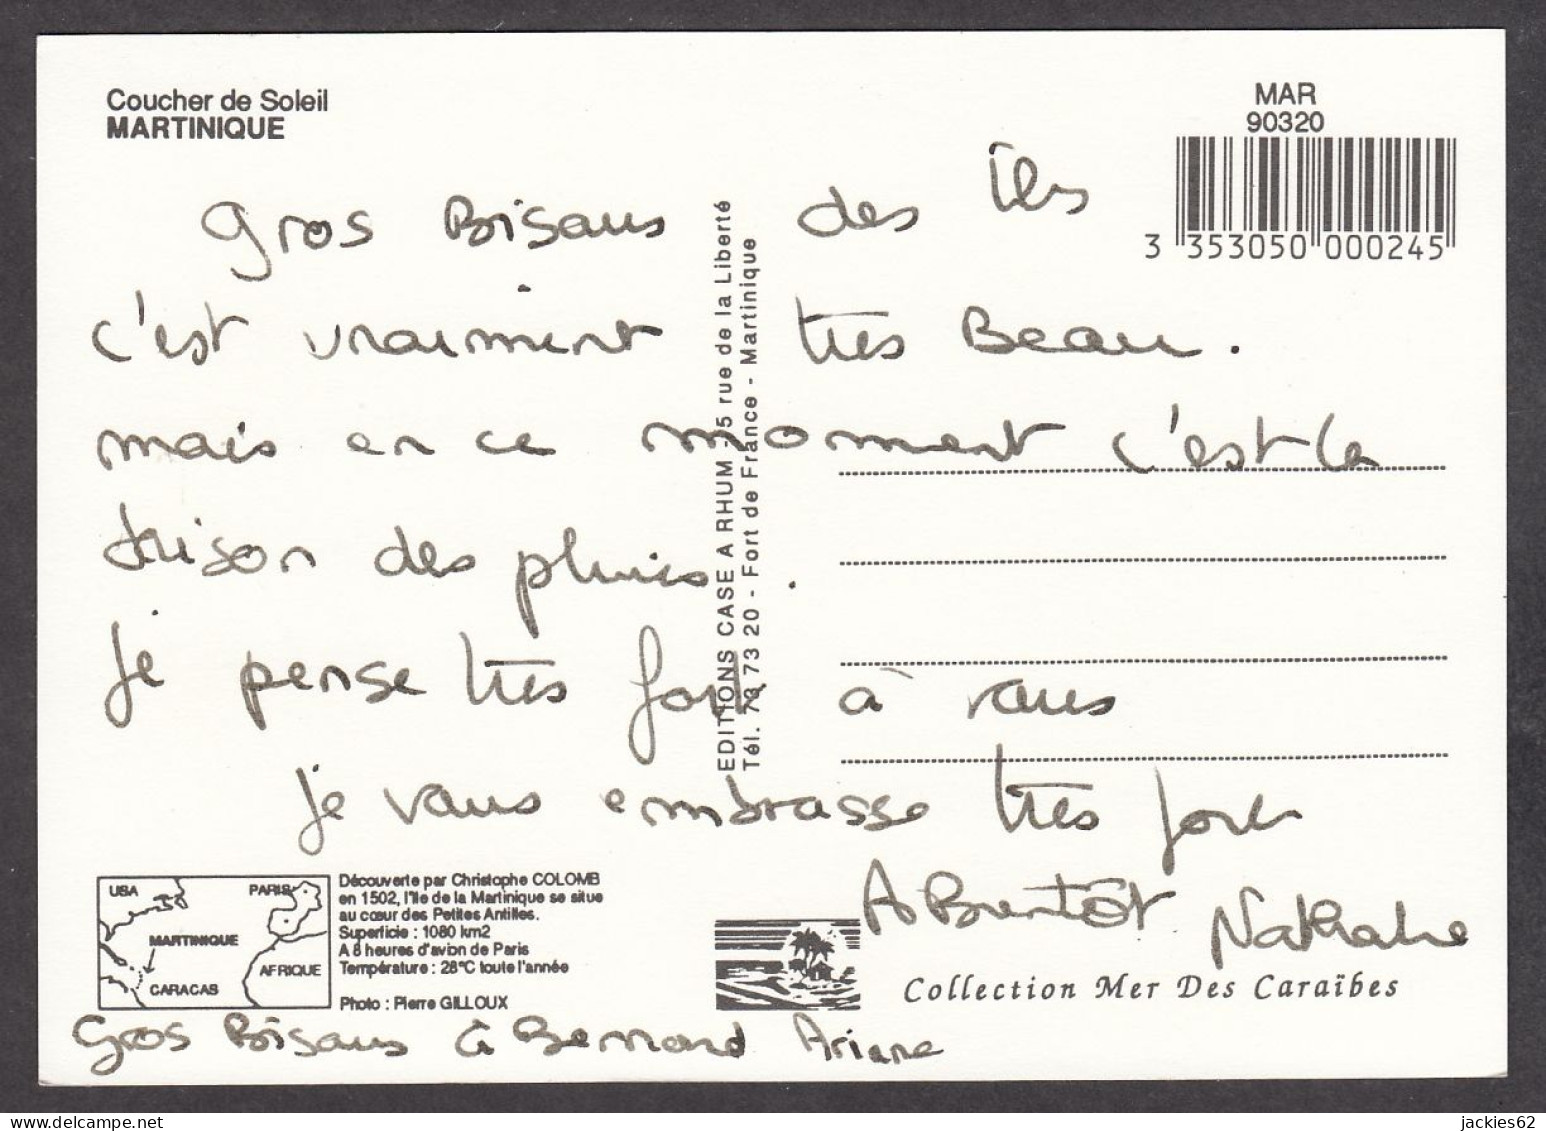 Coucher de Soleil
MARTINIQUE
MAR
90320
3 353050 000245
Gros Bisous des Iles
c'est vraiment très Beau.
mais en ce moment c'est la
saison des pluies.
je pense très fort à vous
je vous embrasse très fort
A Bientôt Nathalie
EDITIONS CASE A RHUM - 5 rue de la Liberté
Tél. 73 73 20 - Fort de France - Martinique
USA
PARIS
MARTINIQUE
AFRIQUE
CARACAS
Découverte par Christophe COLOMB
en 1502, l'île de la Martinique se situe
au cœur des Petites Antilles.
Superficie : 1080 km2
A 8 heures d'avion de Paris
Température : 28°C toute l'année
Photo : Pierre GILLOUX
Collection Mer Des Caraïbes
Gros Bisous à Bernard Ariane
jackies62